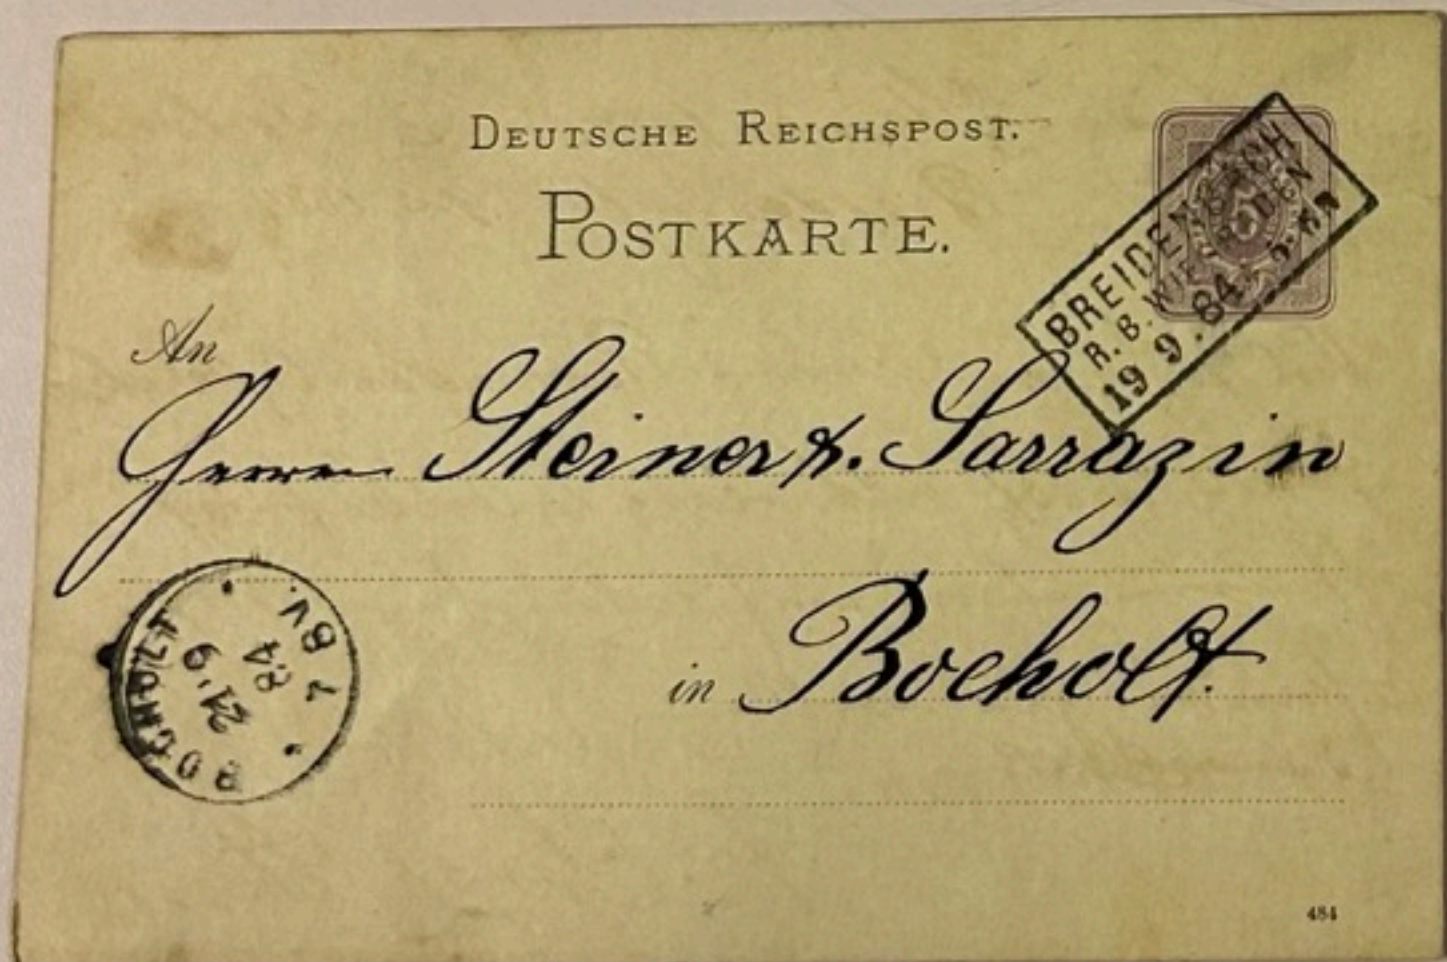 DEUTSCHE REICHSPOST.
POSTKARTE.
BREIDENBACH
R. B. WIESBADEN
19 9. 84. 5-6N
5
An
Herren Steiner &. Sarrazin
in Bocholt.
BOCHOLT
21 9
84
7 8V.
484